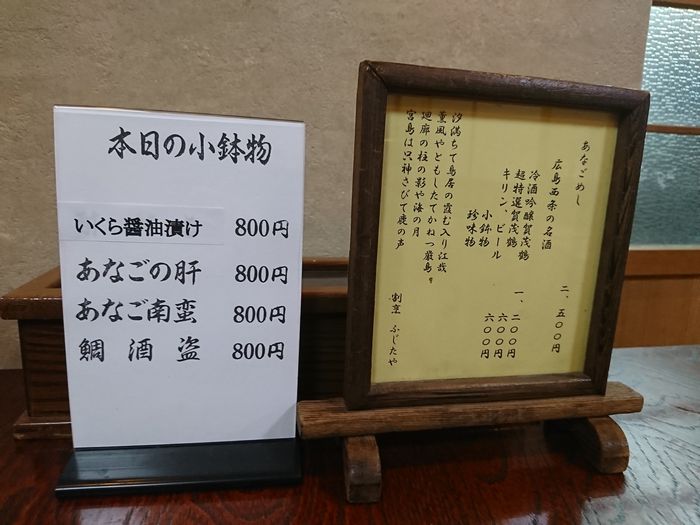 本日の小鉢物
いくら醤油漬け 800円
あなごの肝 800円
あなご南蛮 800円
鯛酒盗 800円
あなごめし 二、五〇〇円
広島西条の名酒
冷酒吟醸賀茂鶴 一、二〇〇円
超特選賀茂鶴 六〇〇円
キリン、ビール 六〇〇円
小鉢物
珍味物
汐満ちて鳥居の霞む入り江哉
薫風やともしたてかねつ厳島
廻廊の柱の影や海の月
宮島は只神さびて鹿の声
割烹 ふじたや